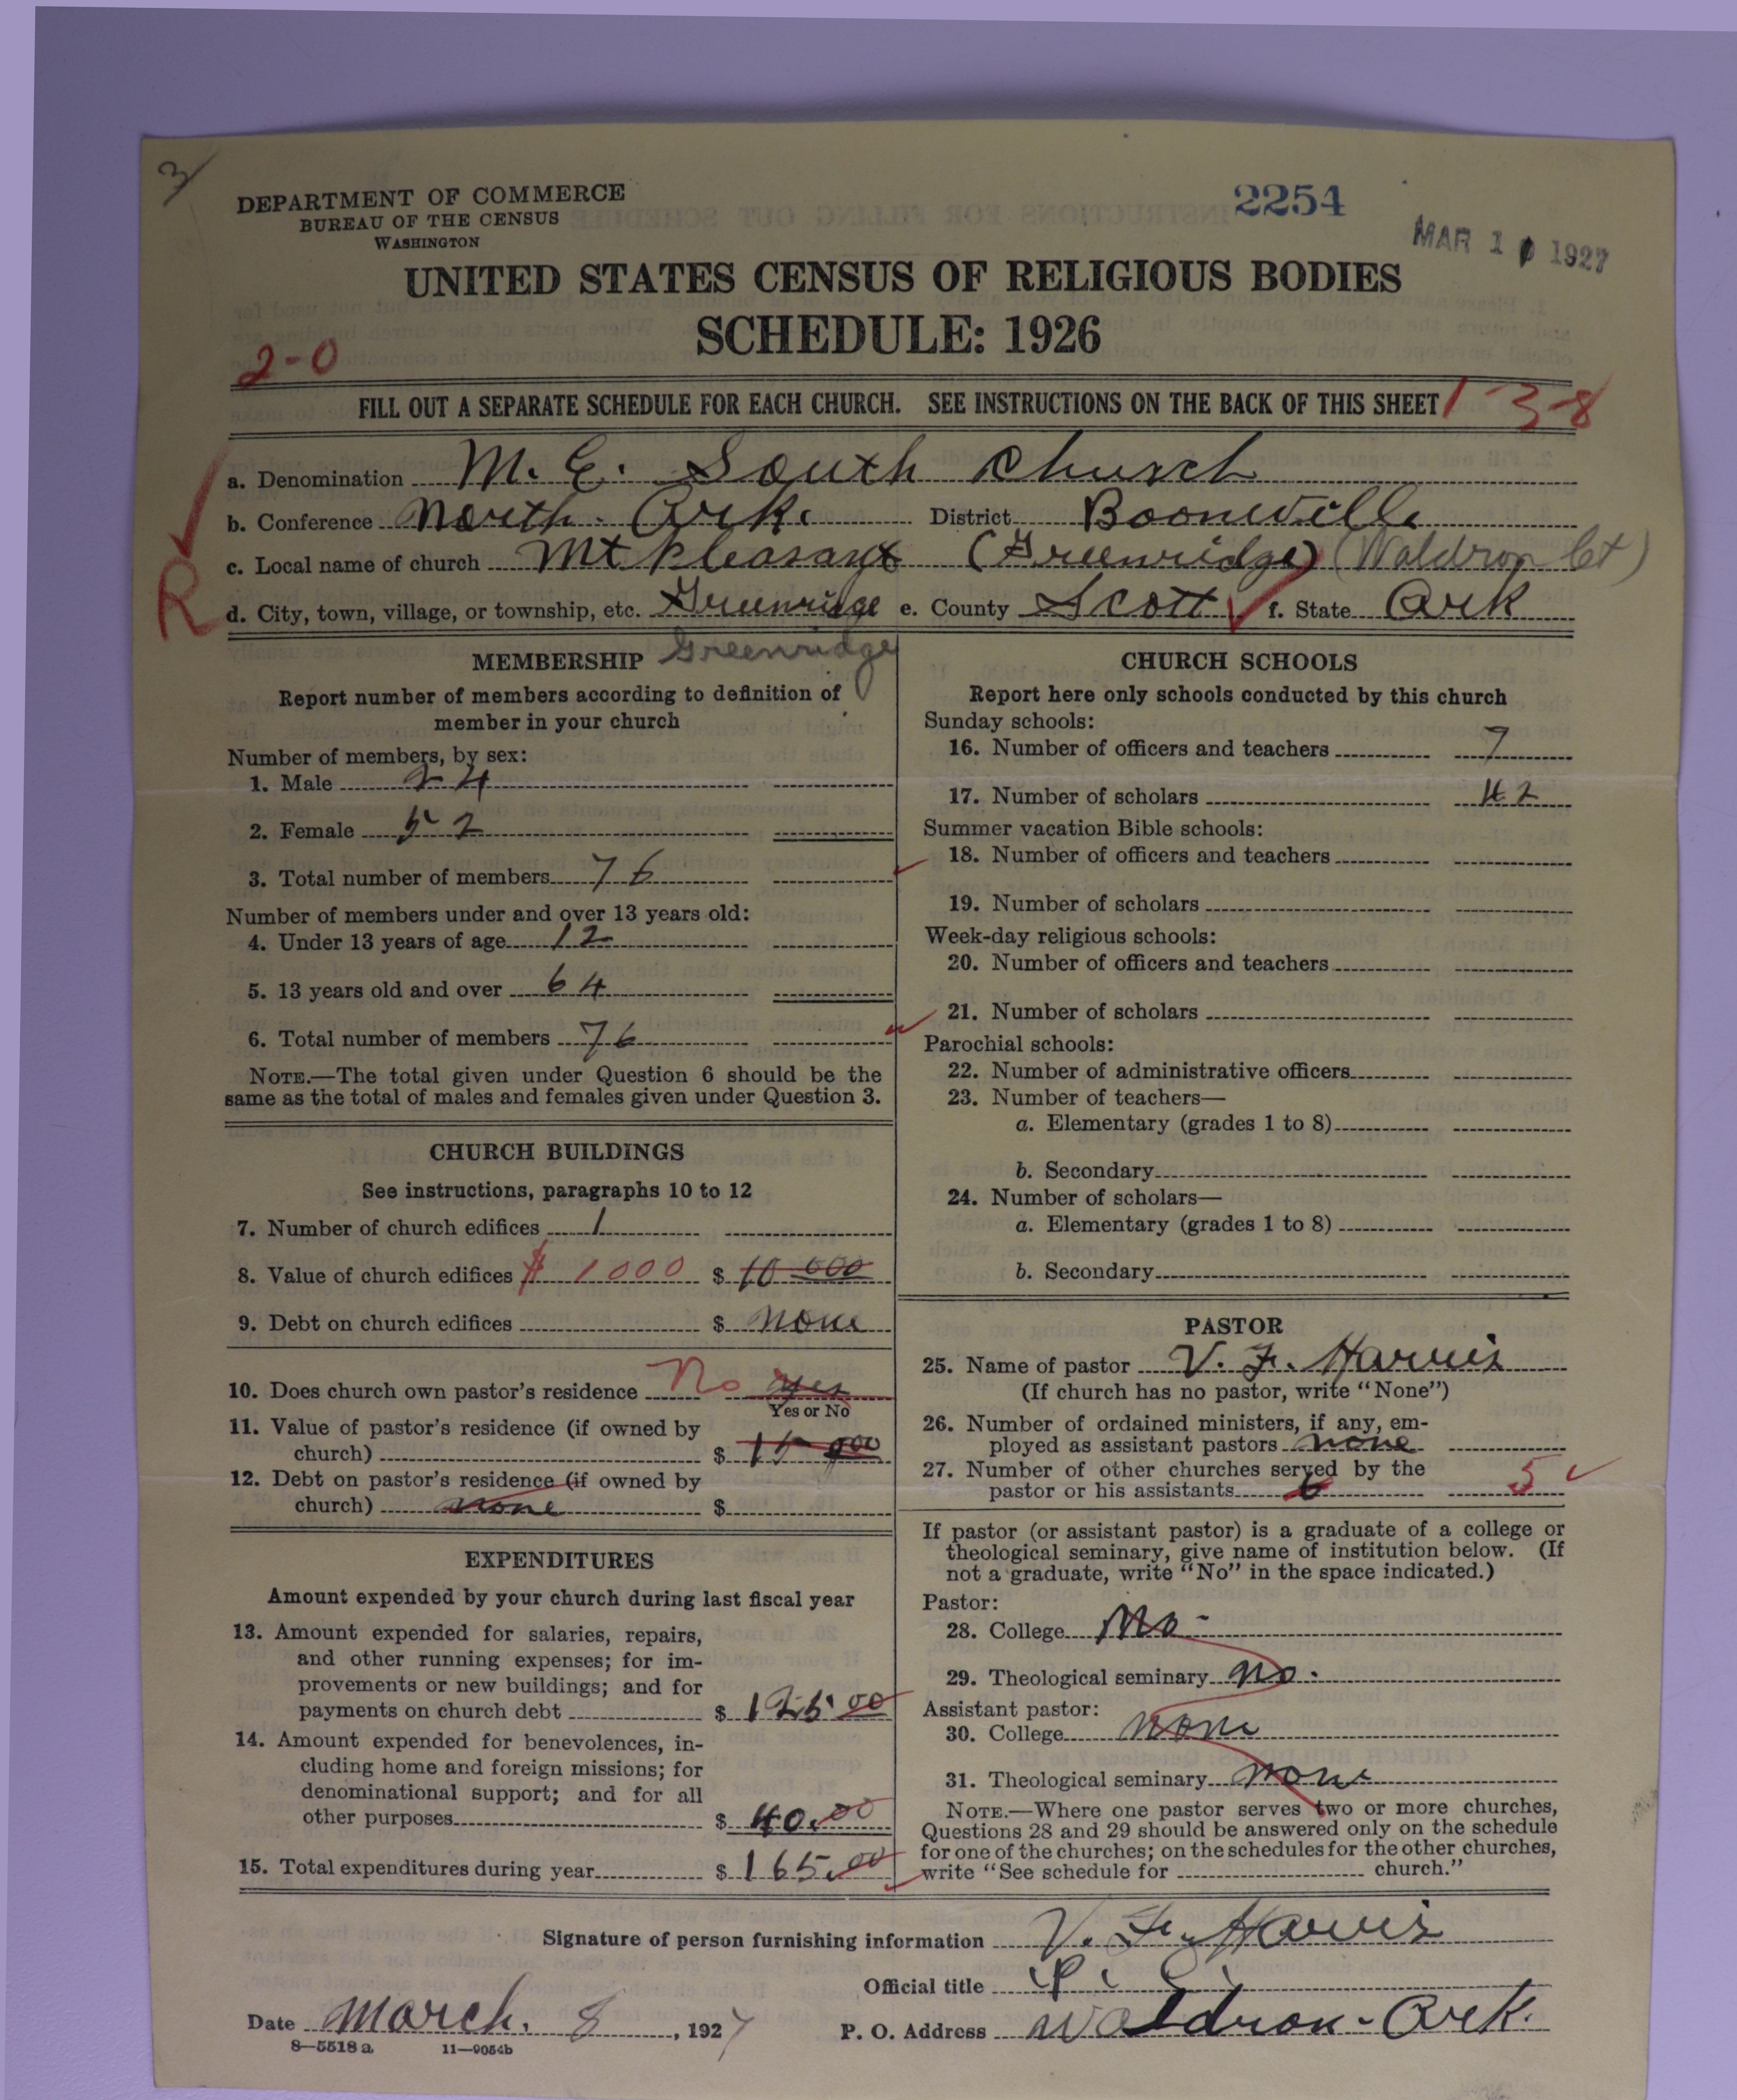 3
DEPARTMENT OF COMMERCE
BUREAU OF THE CENSUS
WASHINGTON
2254
MAR 10 1927
UNITED STATES CENSUS OF RELIGIOUS BODIES
SCHEDULE: 1926
2-0
FILL OUT A SEPARATE SCHEDULE FOR EACH CHURCH. SEE INSTRUCTIONS ON THE BACK OF THIS SHEET
1-3-8
a. Denomination M. E. South Church
b. Conference North. Ark. District Boonville
c. Local name of church Mt Pleasant (Greenridge) (Waldron Ct)
R
d. City, town, village, or township, etc. Greenridge e. County Scott f. State Ark
Greenridge
MEMBERSHIP
Report number of members according to definition of
member in your church
Number of members, by sex:
1. Male 24
2. Female 52
3. Total number of members 76
Number of members under and over 13 years old:
4. Under 13 years of age 12
5. 13 years old and over 64
6. Total number of members 76
NOTE.—The total given under Question 6 should be the
same as the total of males and females given under Question 3.
CHURCH BUILDINGS
See instructions, paragraphs 10 to 12
7. Number of church edifices 1
8. Value of church edifices $ 1000 $ 10 000
9. Debt on church edifices $ none
10. Does church own pastor's residence No yes
Yes or No
11. Value of pastor's residence (if owned by
church) $ 15 000
12. Debt on pastor's residence (if owned by
church) none $
EXPENDITURES
Amount expended by your church during last fiscal year
13. Amount expended for salaries, repairs,
and other running expenses; for im-
provements or new buildings; and for
payments on church debt $ 125 00
14. Amount expended for benevolences, in-
cluding home and foreign missions; for
denominational support; and for all
other purposes $ 40.00
15. Total expenditures during year $ 165.00
CHURCH SCHOOLS
Report here only schools conducted by this church
Sunday schools:
16. Number of officers and teachers 7
17. Number of scholars 42
Summer vacation Bible schools:
18. Number of officers and teachers
19. Number of scholars
Week-day religious schools:
20. Number of officers and teachers
21. Number of scholars
Parochial schools:
22. Number of administrative officers
23. Number of teachers—
a. Elementary (grades 1 to 8)
b. Secondary
24. Number of scholars—
a. Elementary (grades 1 to 8)
b. Secondary
PASTOR
25. Name of pastor V. F. Harris
(If church has no pastor, write "None")
26. Number of ordained ministers, if any, em-
ployed as assistant pastors none
27. Number of other churches served by the
pastor or his assistants 6 5
If pastor (or assistant pastor) is a graduate of a college or
theological seminary, give name of institution below. (If
not a graduate, write "No" in the space indicated.)
Pastor:
28. College No -
29. Theological seminary no.
Assistant pastor:
30. College none
31. Theological seminary none
NOTE.—Where one pastor serves two or more churches,
Questions 28 and 29 should be answered only on the schedule
for one of the churches; on the schedules for the other churches,
write "See schedule for church."
Signature of person furnishing information V. F. Harris
Official title P. C.
Date March. 8, 1927 P. O. Address Waldron - Ark.
8—5518 a 11—9054b